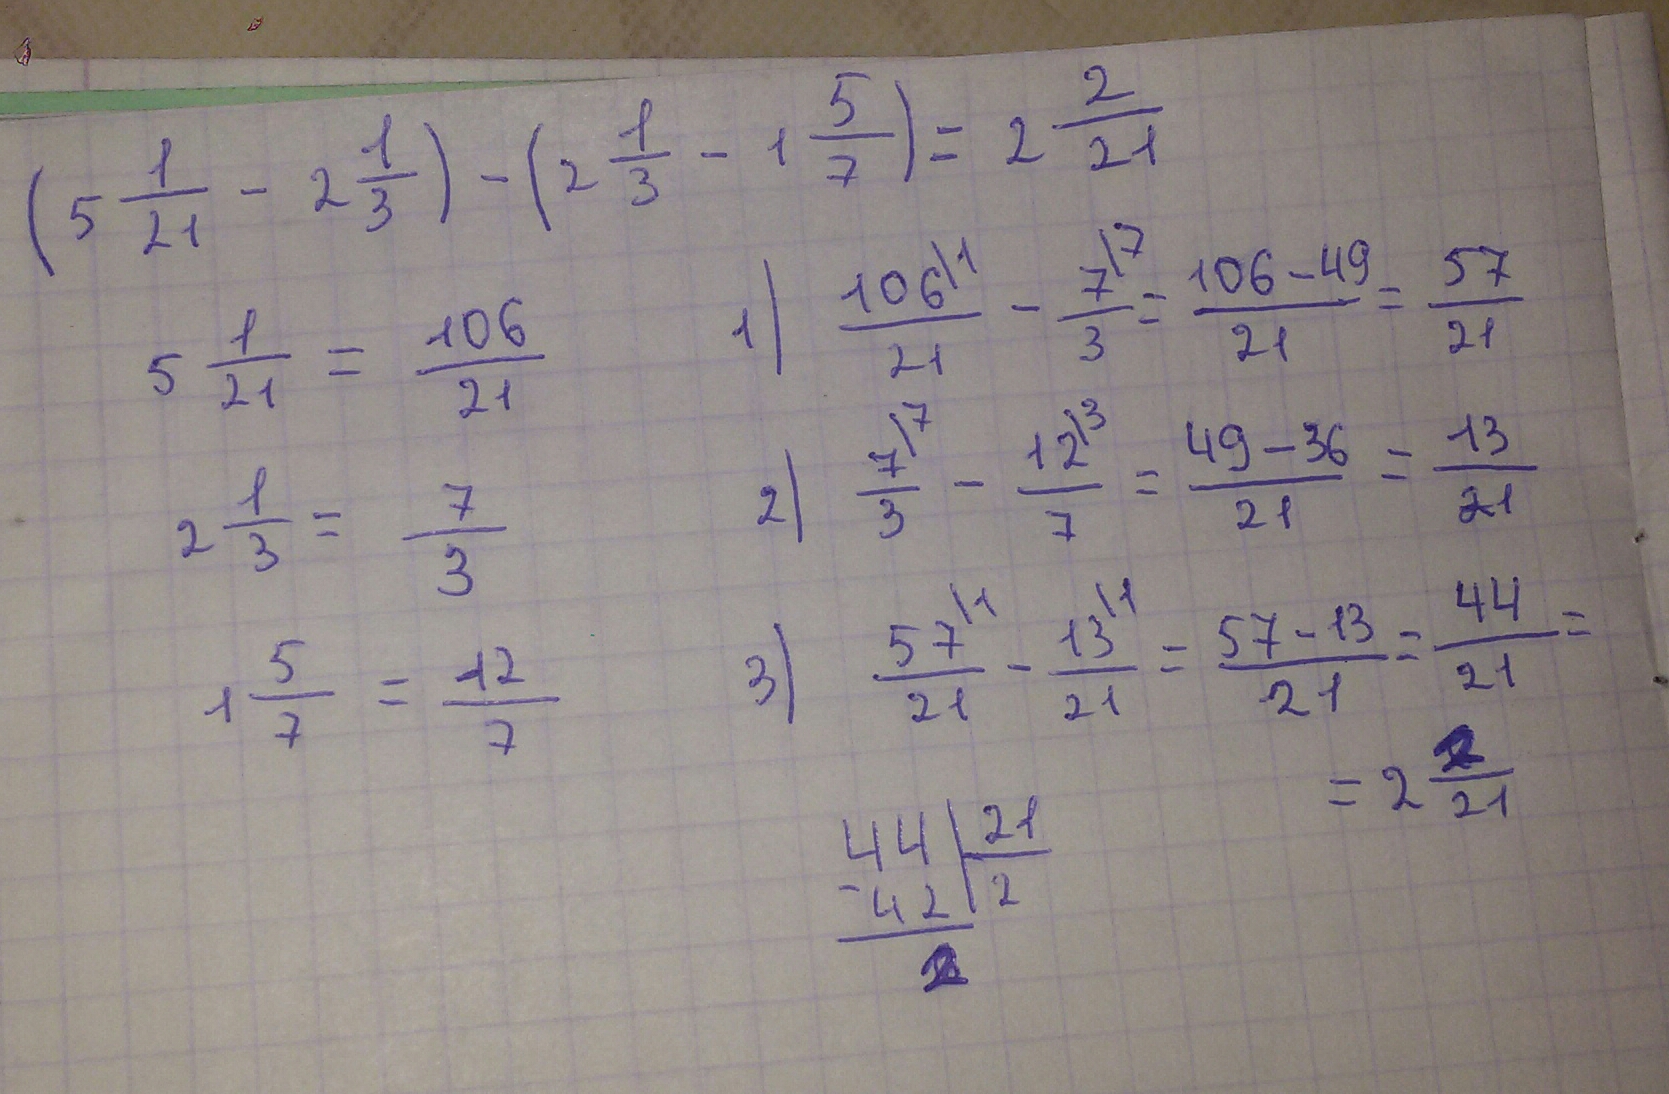 (5 1/21 - 2 1/3) - (2 1/3 - 1 5/7) = 2 2/21
5 1/21 = 106/21
2 1/3 = 7/3
1 5/7 = 12/7
1) 106\1/21 - 7\7/3 = 106-49/21 = 57/21
2) 7\7/3 - 12\3/7 = 49-36/21 = 13/21
3) 57\1/21 - 13\1/21 = 57-13/21 = 44/21 =
= 2 2/21
44 | 21
- 42 | 2
2